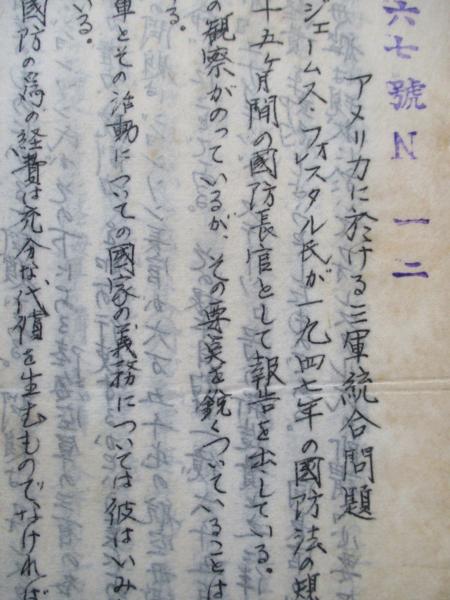 六七號 N 一二
アメリカに於ける三軍統合問題
ジェームス・フォレスタル氏が一九四七年の國防法の規
十五ヶ月間の國防長官として報告を出している。
の観察がのっているが、その要点を鋭くついていることは
る。
軍とその活動についての國家の義務については彼はいみ
いる。
國防の為の経費は充分な代償を生むものでなければ